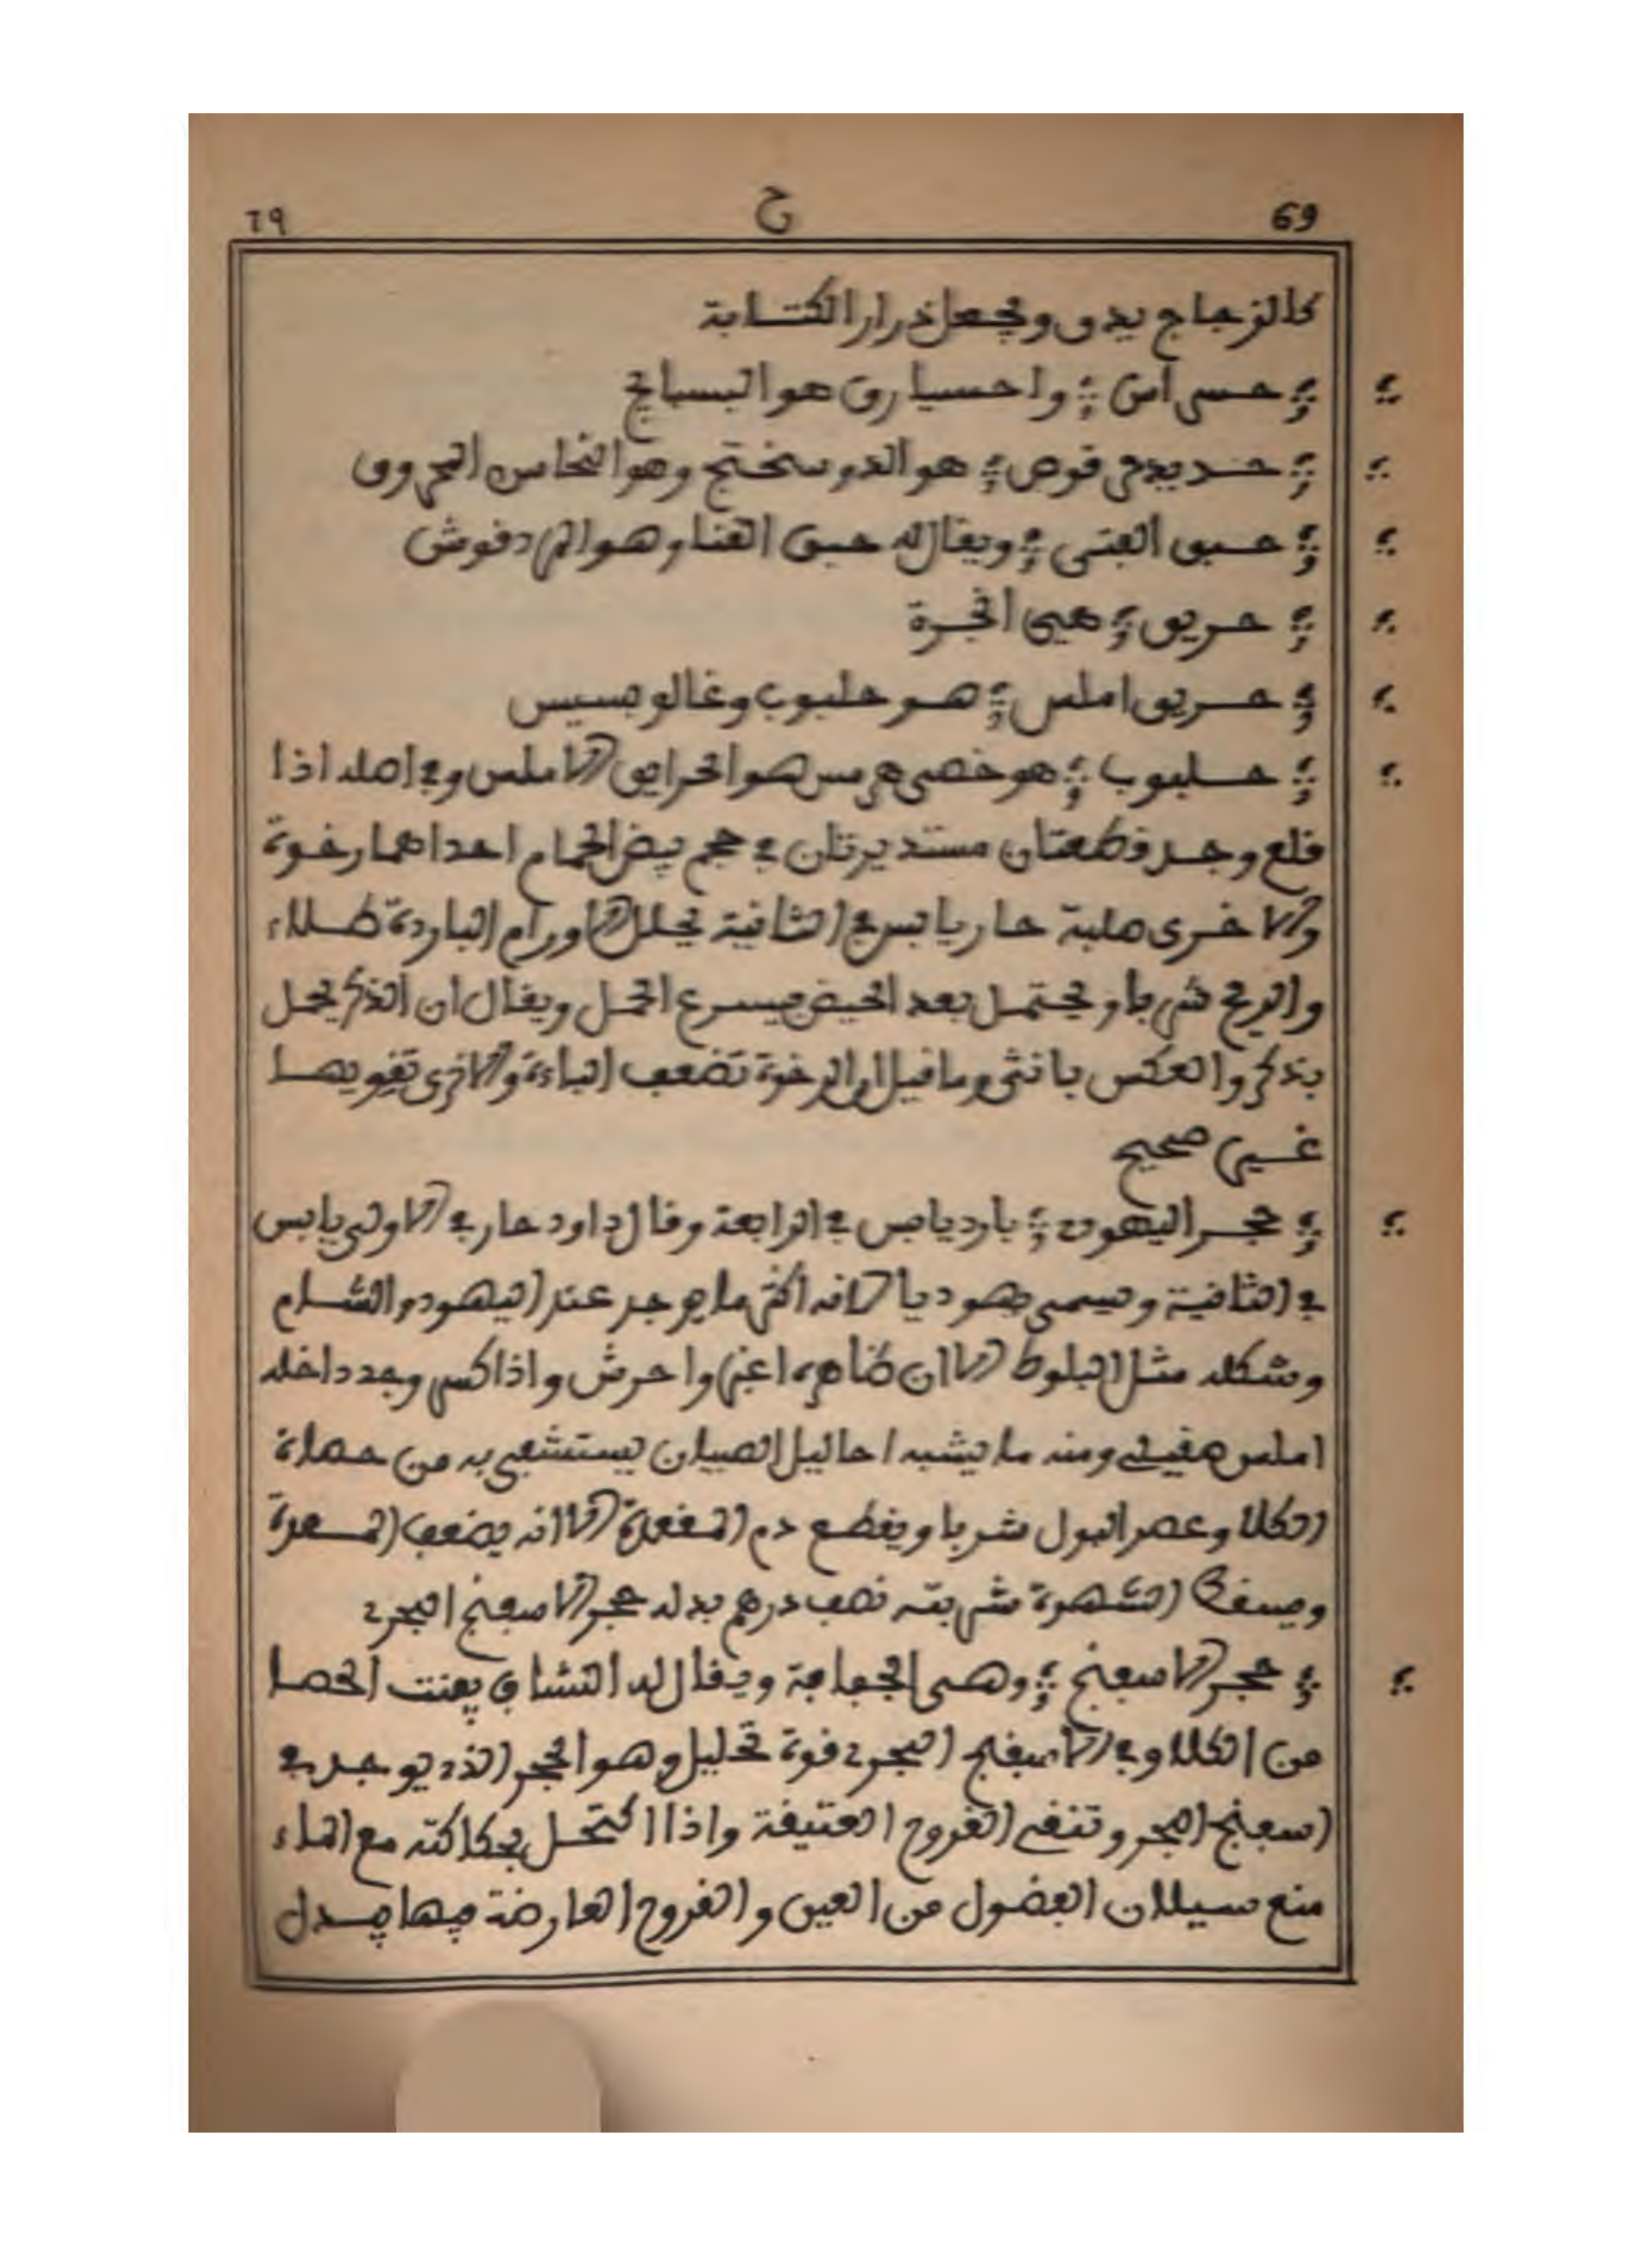 69 ح ٦٩
كالزجاج يدق ويجعل ذرار الكتابة
حسى اس واحسيارق هو البسبايج
حديدى قوص هو الدوسختج وهو النحاس المحروق
حبق الفتى ويقال له حبق القنا وهو المردقوش
حريق هي انجرة
حريق املس هو حلبوب وغالوبسيس
حلبوب هو خصى هرمس هو الحرايق الاملس وفي اصله اذا
قلع وجد قطعتان مستديرتان في حجم بيض الحمام احداهما رخوة
والاخرى صلبة حار يابس في الثانية يحلل الاورام الباردة طلاء
والريح شربا ويحتمل بعد الحيض فيسرع الحمل ويقال ان الذكر يحمل
بذكر والعكس بانثى وما قيل ان الرخوة تضعف الباءة والاخرى تقويها
غير صحيح
حجر اليهود بارد يابس في الرابعة وقال داود حار في الاولى يابس
في الثانية ويسمى يهوديا لانه اكثر ما يوجد عند اليهود والشام
وشكله مثل البلوط الا ان ظاهره اغبر واحرش واذا كسر وجد داخله
املس صقيل ومنه ما يشبه احاليل الصبيان يستشفى به من حصاة
الكلا وعصر البول شربا ويقطع دم المقعدة الا انه يضعف المعدة
ويسقط الشهوة شربته نصف درهم بدله حجر الاسفنج البحري
حجر الاسفنج وهى الجفافة ويقال له النشاف يفتت الحصا
من الكلا وفي الاسفنج البحري قوة تحليل وهو الحجر الذي يوجد في
اسفنج البحر وتنقى القروح العتيقة واذا اكتحل بحكاكته مع الماء
منع سيلان الفضول من العين والقروح العارضة فيها بدل